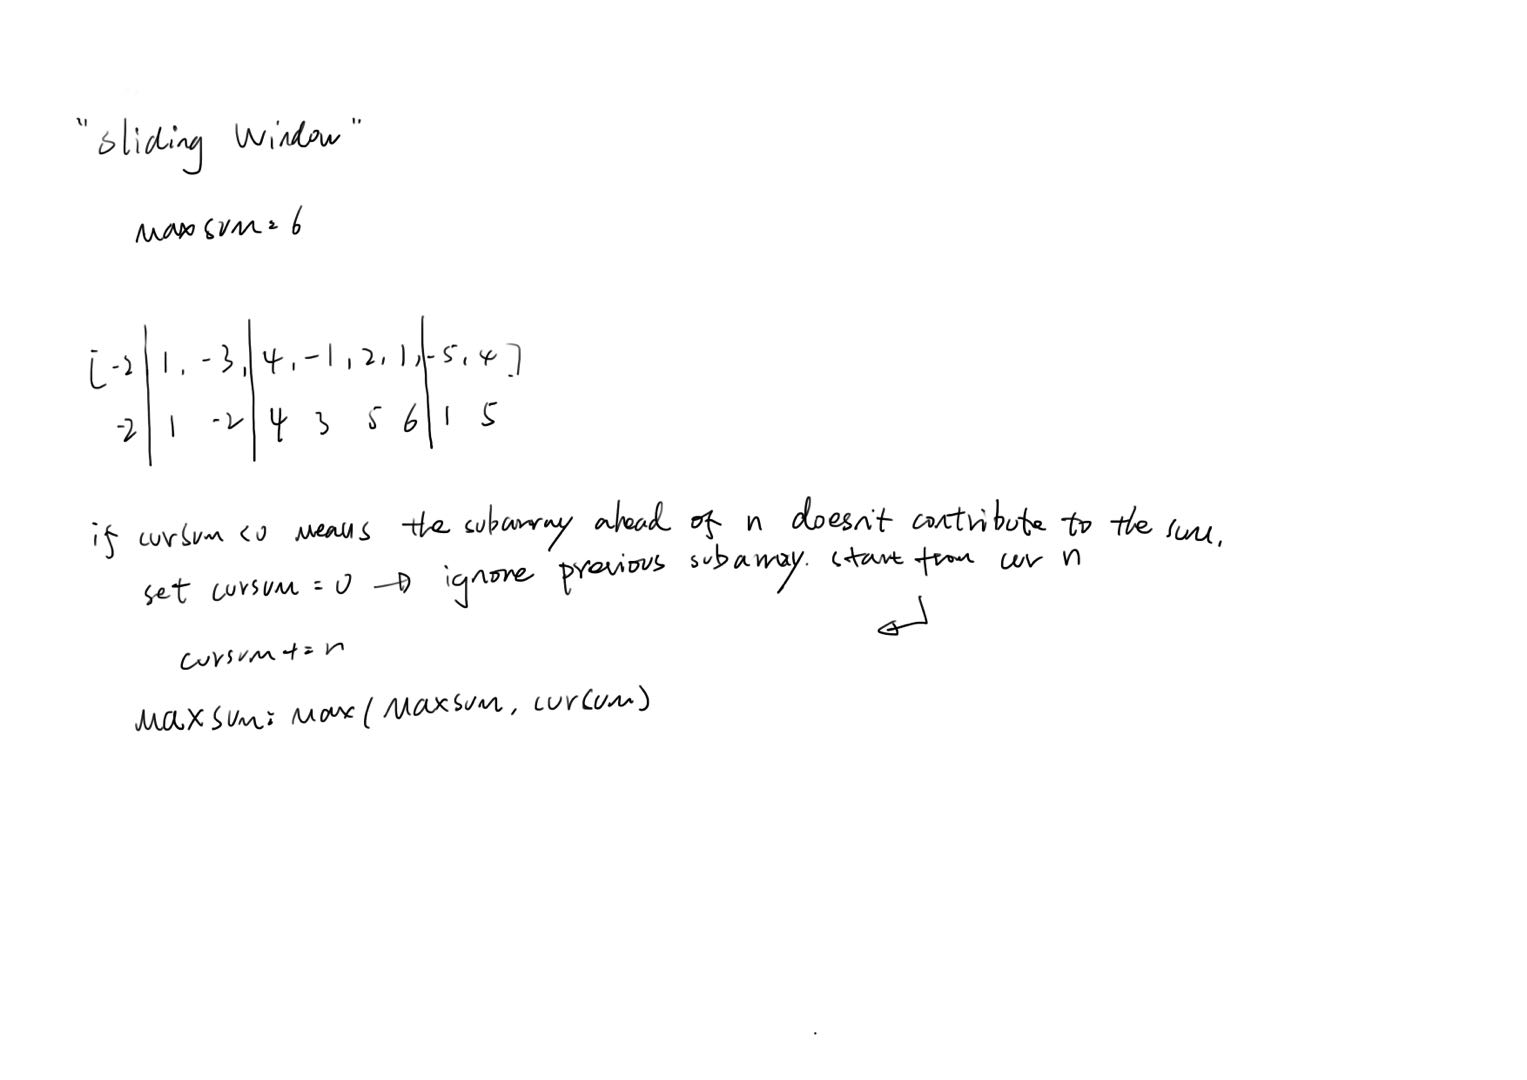 "sliding Window"
maxsum = 6
[-2 | 1, -3, | 4, -1, 2, 1, | -5, 4]
-2 | 1 -2 | 4 3 5 6 | 1 5
if cursum <0 means the subarray ahead of n doesn't contribute to the sum.
set cursum = 0 → ignore previous subarray. start from cur n
cursum += n
maxsum = max(maxsum, cursum)